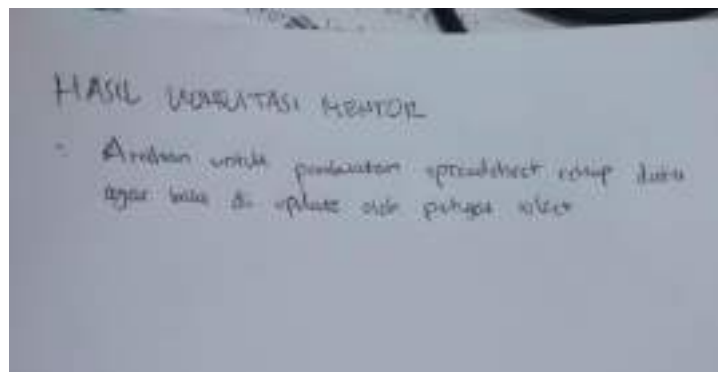 HASIL KONSULTASI MENTOR
- Arahan untuk pembuatan spreadsheet rekap data
agar bisa di update oleh petugas